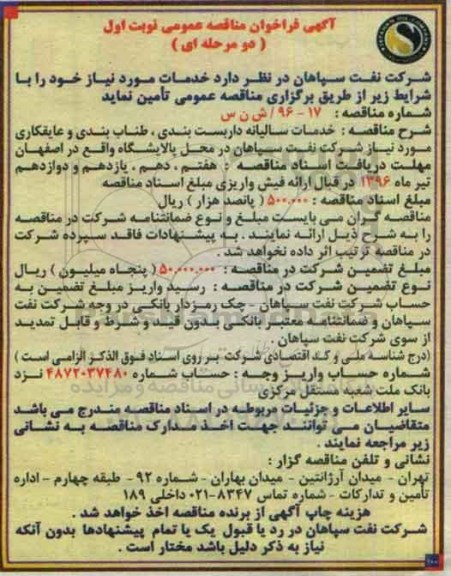 آگهی فراخوان مناقصه عمومی نوبت اول
( دو مرحله ای )
شرکت نفت سپاهان در نظر دارد خدمات مورد نیاز خود را با
شرایط زیر از طریق برگزاری مناقصه عمومی تأمین نماید
شماره مناقصه : ۱۷ - ۹۶ / ش ن س
شرح مناقصه : خدمات سالیانه داربست بندی ، طناب بندی و عایقکاری
مورد نیاز شرکت نفت سپاهان در محل پالایشگاه واقع در اصفهان
مهلت دریافت اسناد مناقصه : هفتم ، دهم ، یازدهم و دوازدهم
تیر ماه ۱۳۹۶ در قبال ارائه فیش واریزی مبلغ اسناد مناقصه
مبلغ اسناد مناقصه : ۵۰۰.۰۰۰ ( پانصد هزار ) ریال
مناقصه گران می بایست مبلغ و نوع ضمانتنامه شرکت در مناقصه
را به شرح ذیل ارائه نمایند . به پیشنهادات فاقد سپرده شرکت
در مناقصه ترتیب اثر داده نخواهد شد .
مبلغ تضمین شرکت در مناقصه : ۵۰.۰۰۰.۰۰۰ ( پنجاه میلیون ) ریال
نوع تضمین شرکت در مناقصه : رسید واریز مبلغ تضمین به
حساب شرکت نفت سپاهان - چک رمزدار بانکی در وجه شرکت نفت
سپاهان و ضمانتنامه معتبر بانکی بدون قید و شرط و قابل تمدید
از سوی شرکت نفت سپاهان .
(درج شناسه ملی و کد اقتصادی شرکت بر روی اسناد فوق الذکر الزامی است )
شماره حساب واریز وجه : حساب شماره ۴۸۷۲۰۳۷۴۸۰ نزد
بانک ملت شعبه مستقل مرکزی
سایر اطلاعات و جزئیات مربوطه در اسناد مناقصه مندرج می باشد
متقاضیان می توانند جهت اخذ مدارک مناقصه به نشانی
زیر مراجعه نمایند .
نشانی و تلفن مناقصه گزار :
تهران - میدان آرژانتین - میدان بهاران - شماره ۹۲ - طبقه چهارم - اداره
تأمین و تدارکات - شماره تماس ۸۳۴۷-۰۲۱ داخلی ۱۸۹
هزینه چاپ آگهی از برنده مناقصه اخذ خواهد شد .
شرکت نفت سپاهان در رد یا قبول یک یا تمام پیشنهادها بدون آنکه
نیاز به ذکر دلیل باشد مختار است .